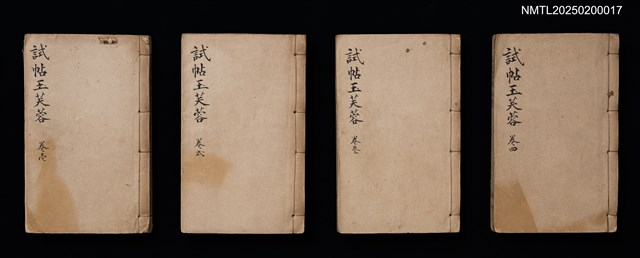 NMTL20250200017
試帖玉芙蓉
卷壱
試帖玉芙蓉
卷弐
試帖玉芙蓉
卷叁
試帖玉芙蓉
卷四